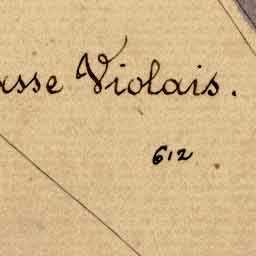 asse Violais.
612